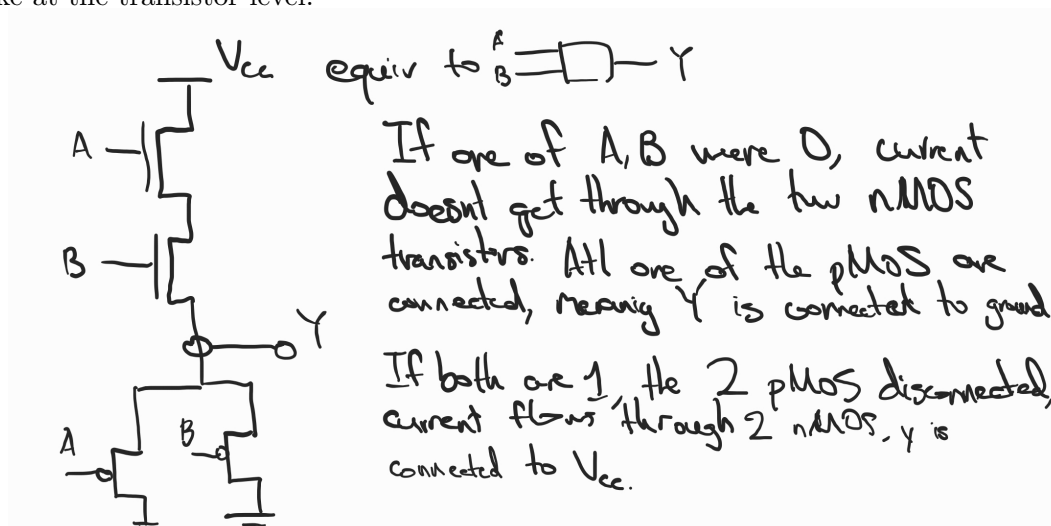 ke at the transistor level.
Vcc equiv to A B Y
A
B
Y
A B
If one of A, B were 0, current
doesnt get through the two nMOS
transistors. Atl one of the pMOS are
connected, meaning Y is connected to ground
If both are 1, the 2 pMOS disconnected,
current flows through 2 nMOS, y is
connected to Vcc.